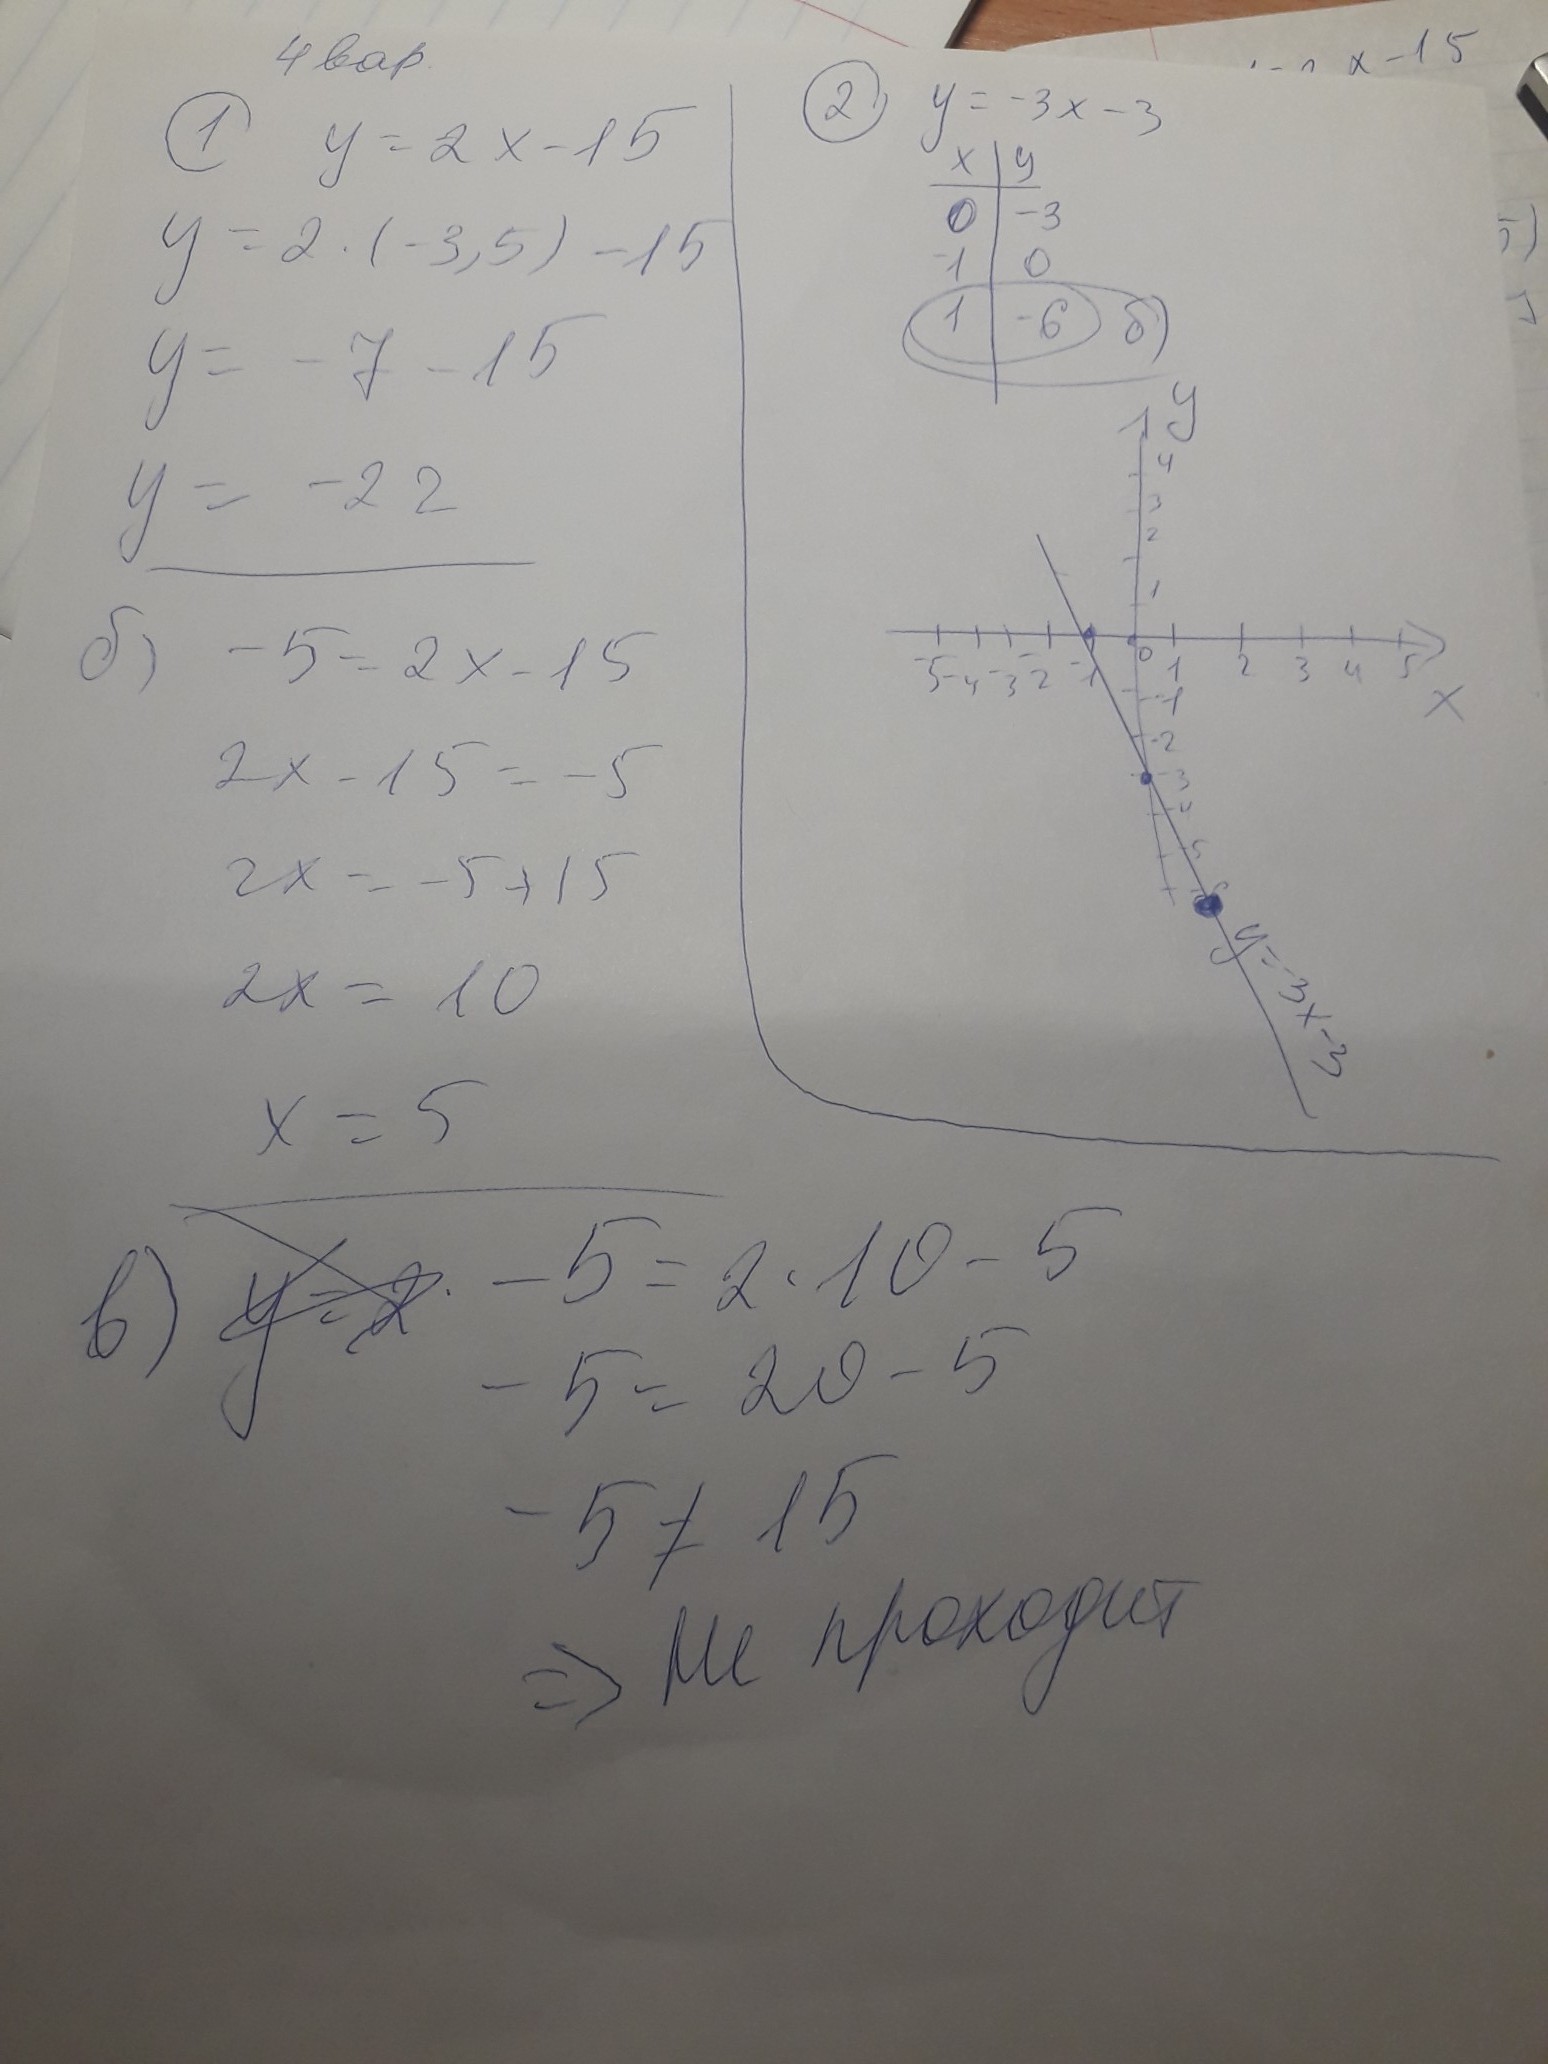 4 вар.
1 y = 2x - 15
y = 2 · (-3,5) - 15
y = -7 - 15
y = -22
б) -5 = 2x - 15
2x - 15 = -5
2x = -5 + 15
2x = 10
x = 5
в) y = 2 · -5 = 2 · 10 - 5
-5 = 20 - 5
-5 ≠ 15
=> Не проходит
2) y = -3x - 3
x | y
0 | -3
-1 | 0
1 | -6 б)
y
4
3
2
1
-5 -4 -3 -2 -1 0 1 2 3 4 5
x
-1
-2
-3
-5
y = -3x - 3
x - 15